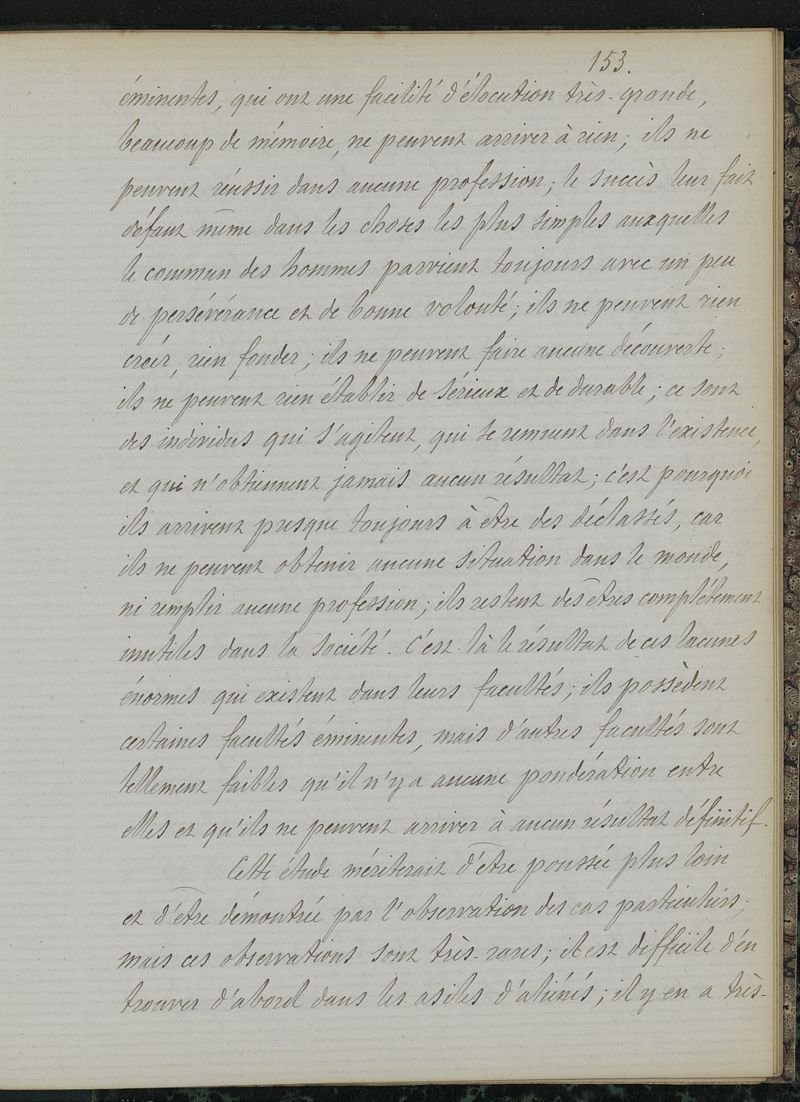 153.
éminentes, qui ont une facilité d'élocution très-grande,
beaucoup de mémoire, ne peuvent arriver à rien; ils ne
peuvent réussir dans aucune profession; le succès leur fait
défaut même dans les choses les plus simples auxquelles
le commun des hommes parvient toujours avec un peu
de persévérance et de bonne volonté; ils ne peuvent rien
créer, rien fonder; ils ne peuvent faire aucune découverte;
ils ne peuvent rien établir de sérieux et de durable; ce sont
des individus qui s'agitent, qui se remuent dans l'existence,
et qui n'obtiennent jamais aucun résultat; c'est pourquoi
ils arrivent presque toujours à être des déclassés, car
ils ne peuvent obtenir aucune situation dans le monde,
ni remplir aucune profession; ils restent des êtres complétement
inutiles dans la société. C'est là le résultat de ces lacunes
énormes qui existent dans leurs facultés; ils possèdent
certaines facultés éminentes, mais d'autres facultés sont
tellement faibles qu'il n'y a aucune pondération entre
elles et qu'ils ne peuvent arriver à aucun résultat définitif.
Cette étude mériterait d'être poussée plus loin
et d'être démontrée par l'observation des cas particuliers;
mais ces observations sont très-rares; il est difficile d'en
trouver d'abord dans les asiles d'aliénés; il y en a très-